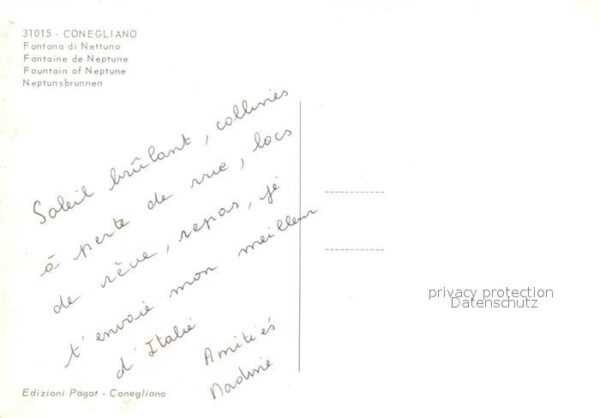 31015 - CONEGLIANO
Fontana di Nettuno
Fontaine de Neptune
Fountain of Neptune
Neptunsbrunnen
Soleil brûlant, collines
à perte de vue, lacs
de rêve, repos, je
t'envoie mon meilleur
d'Italie
Amitiés
Nadine
privacy protection
Datenschutz
Edizioni Pagot - Conegliano